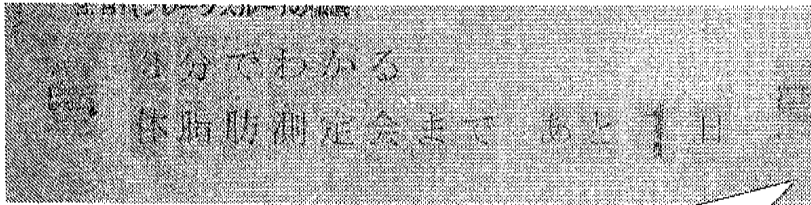 3分でわかる
体脂肪測定会まで あと1日